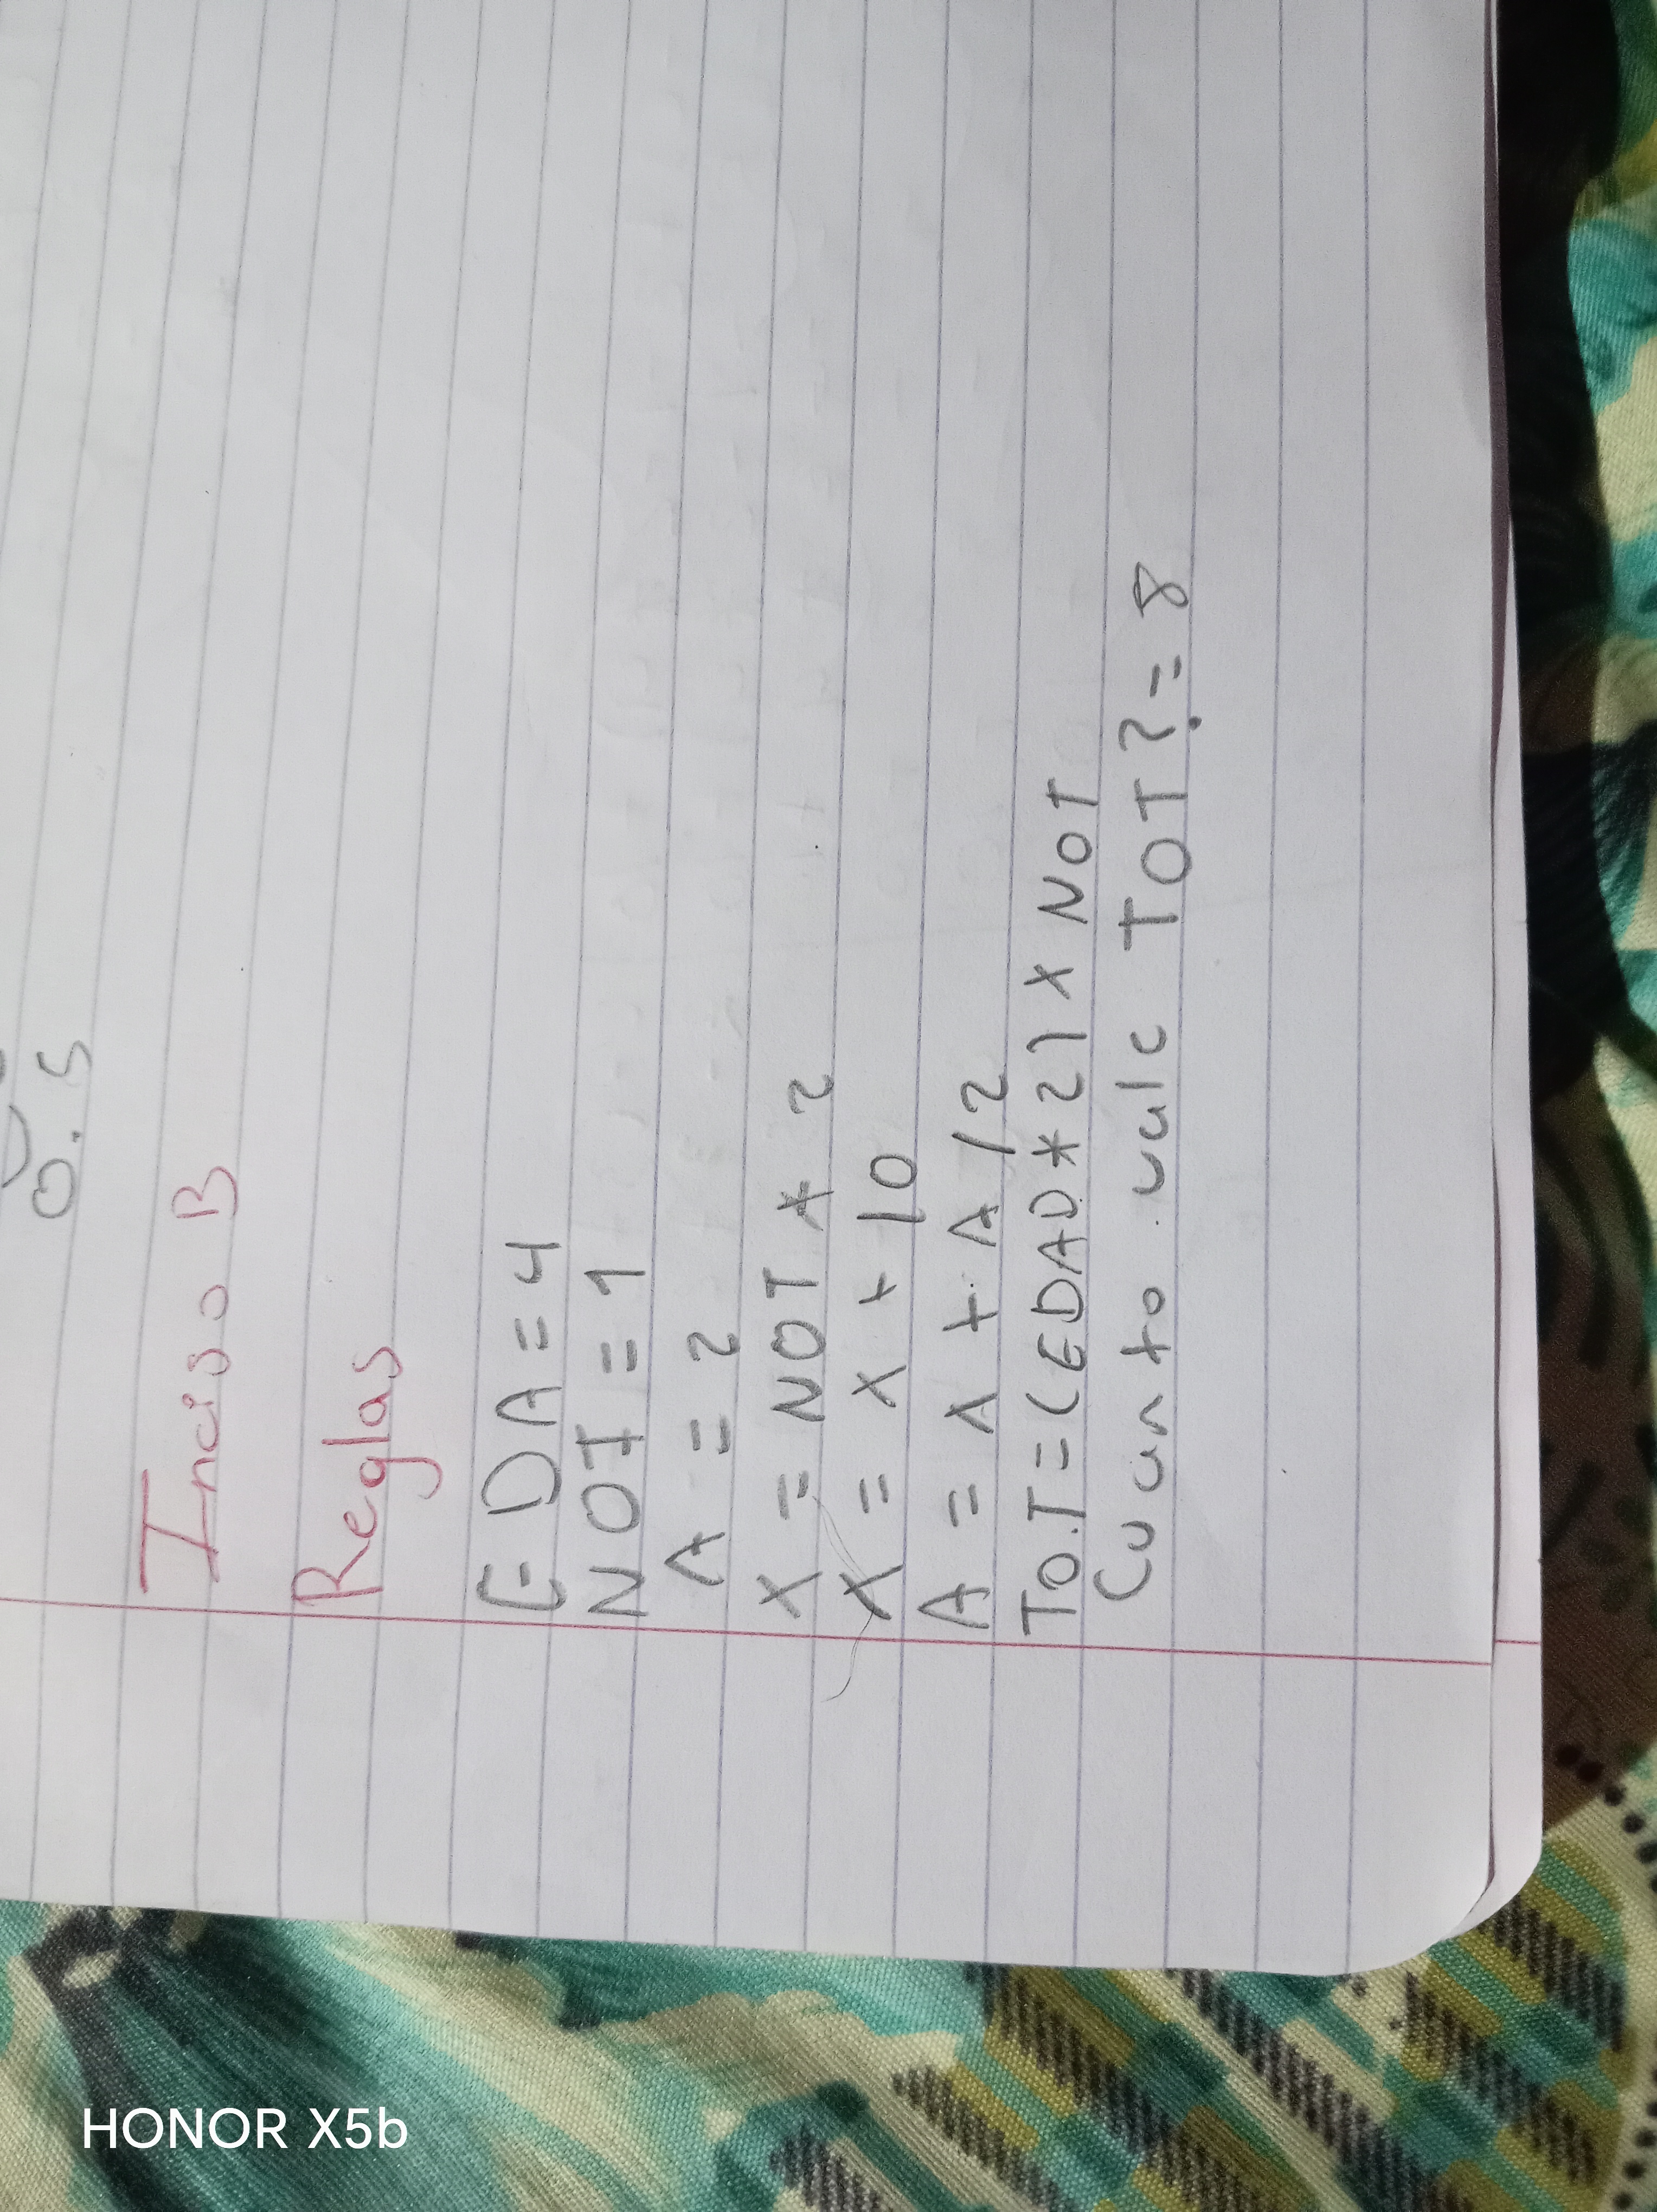 0.5
Inciso B
Reglas
EDA = 4
NOT = 1
A = 2
X = NOT * 2
X = X + 10
A = A + A / 2
TO.T = (EDAD * 2) X NOT
Cuanto vale TOT? = 8
HONOR X5b